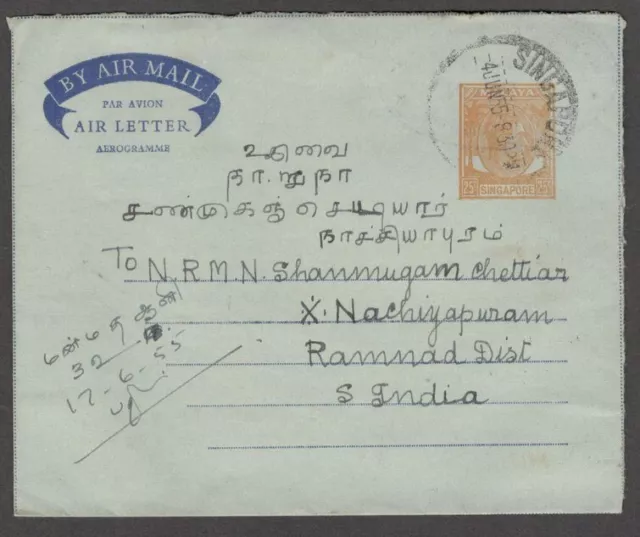 BY AIR MAIL
PAR AVION
AIR LETTER
AEROGRAMME
SINGAPORE
MALAYA
25c SINGAPORE 25c
உ
நா.
சண்முகஞ்செட்டியார்
நாச்சியாபுரம்
To N.R.M.N. Shanmugam Chettiar
X. Nachiyapuram
Ramnad Dist
S India
மன்மத ஆனி
32
17-6-55